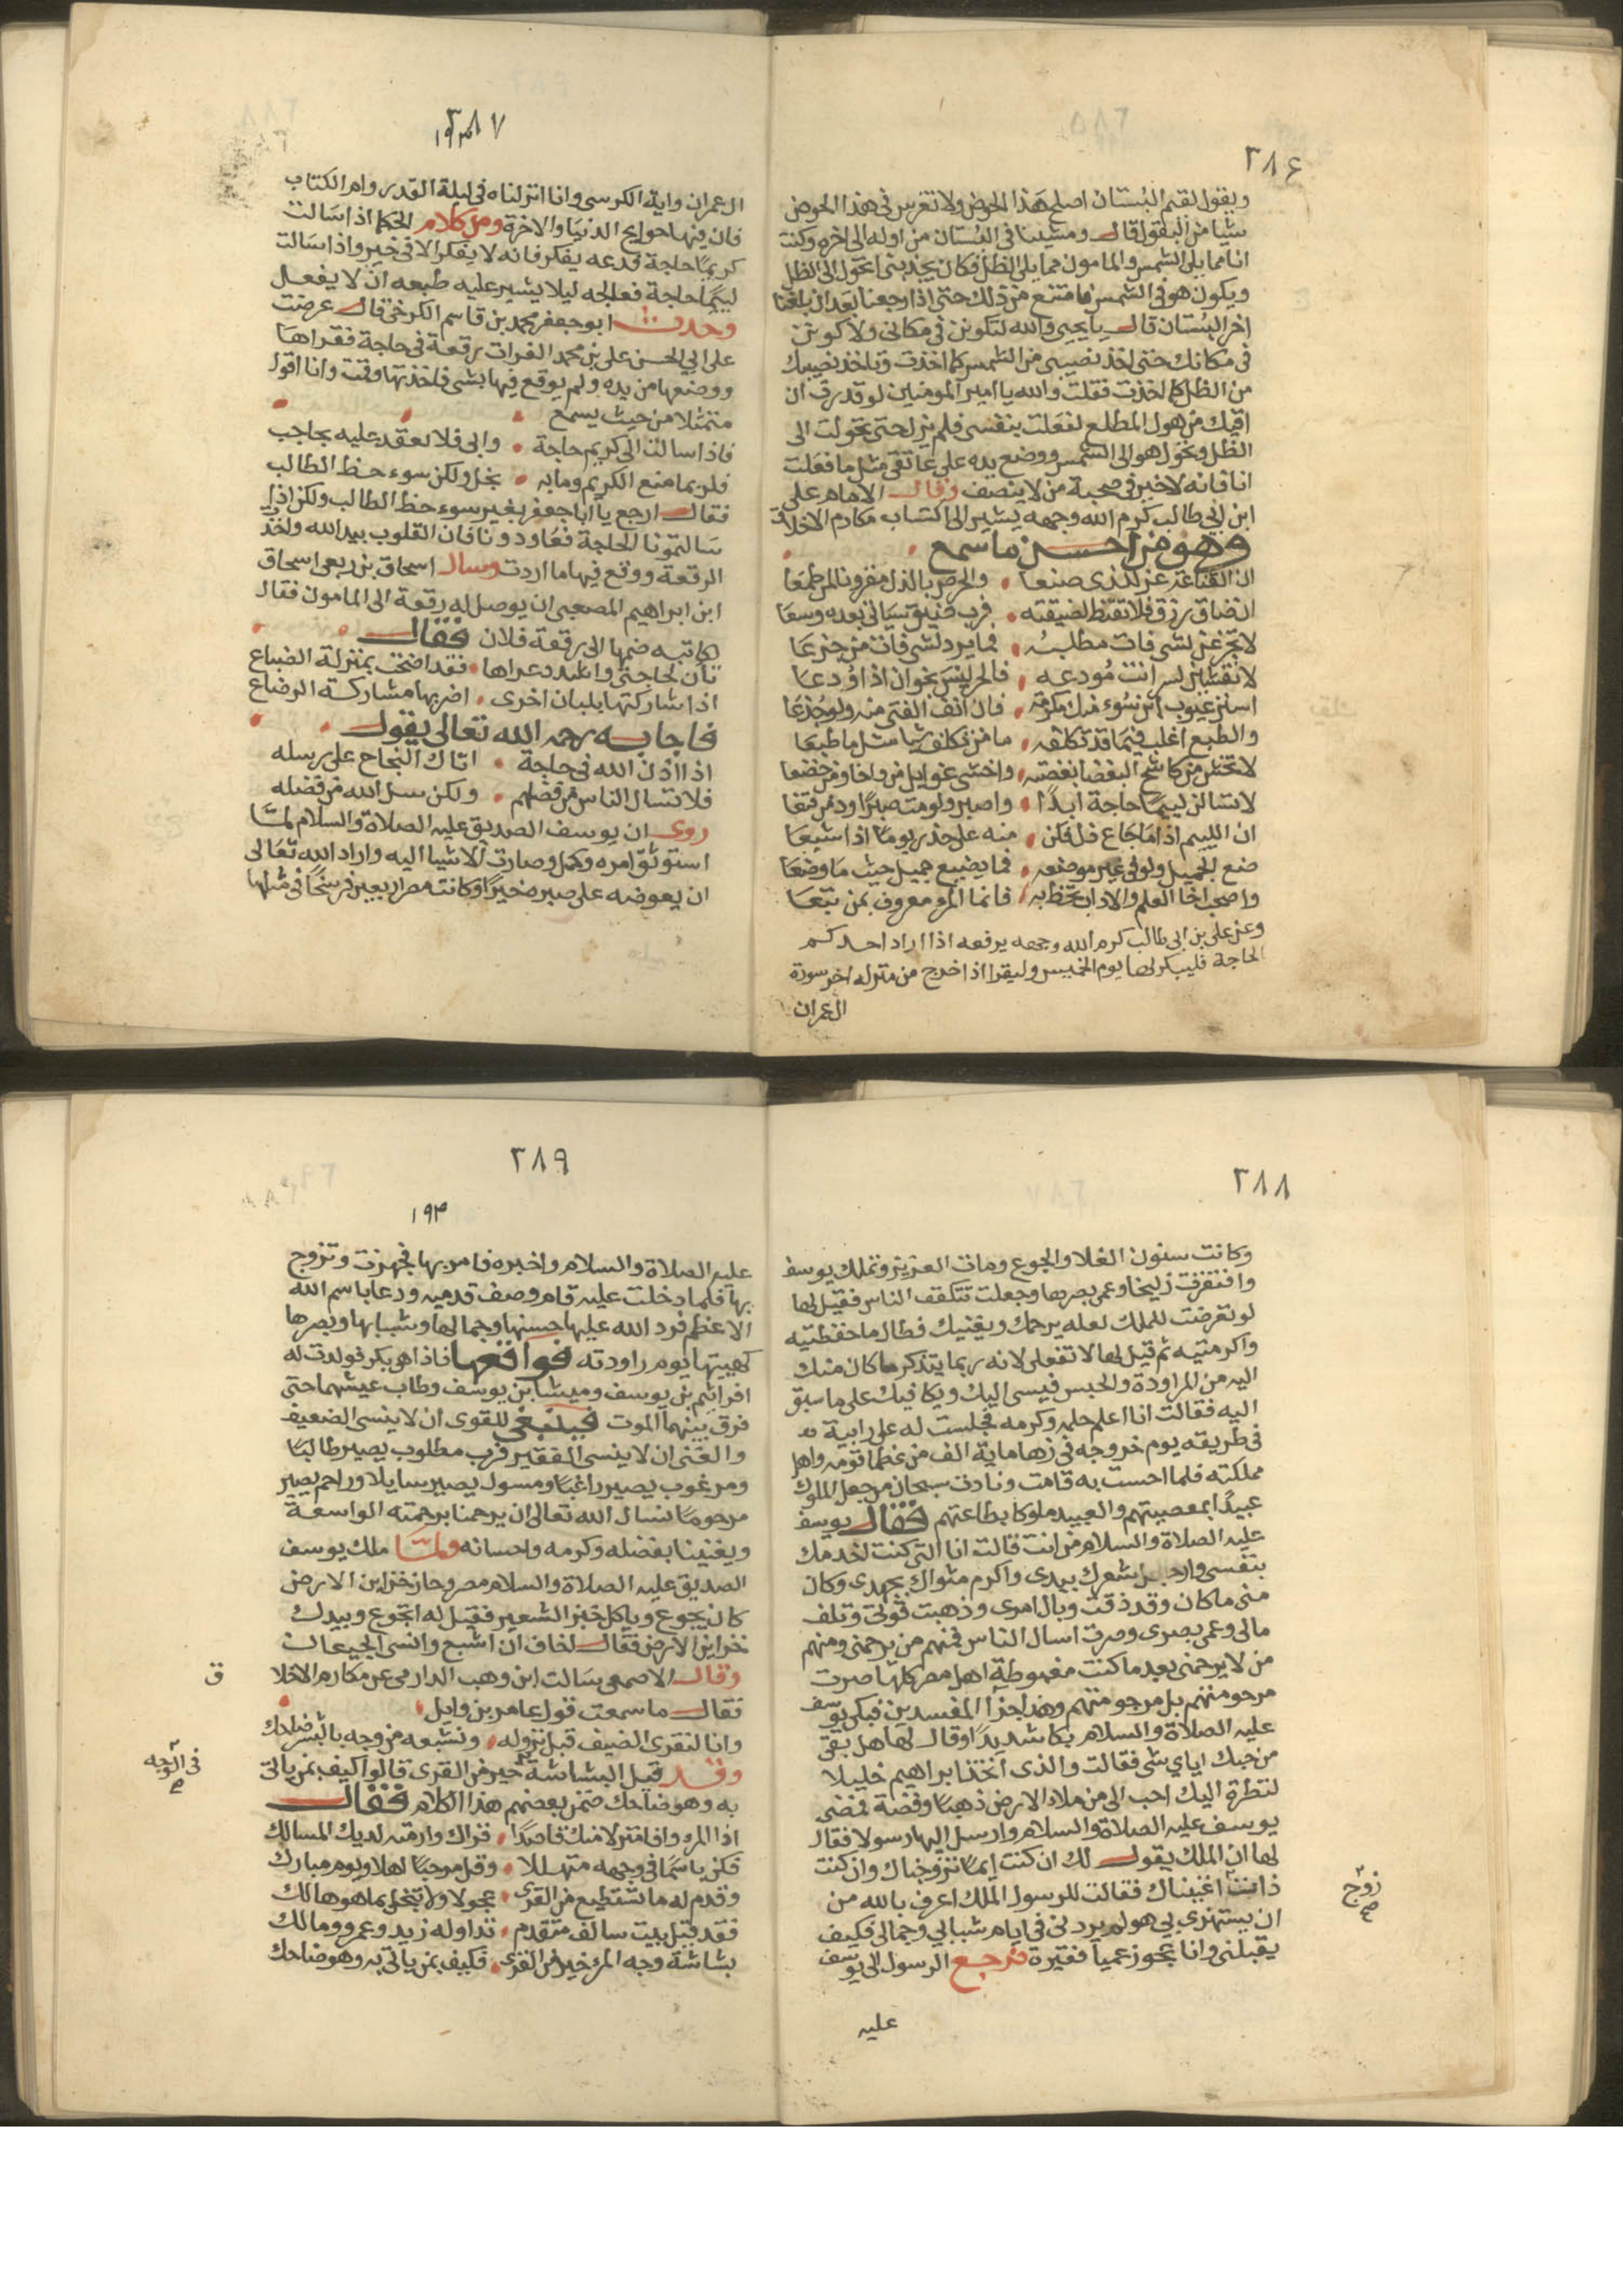 ٢٨٦
ويقول لقيم البستان اصلح هذا الحوض ولا تغرس في هذا الحوض
شيا من البقول قال ومشينا في البستان من اوله الى اخره وكنت
انا مما يلي الشمس والمامون مما يلي الظل فكان يجذبني اتحول الى الظل
ويكون هو في الشمس فامتنع من ذلك حتى اذا رجعنا بعد ان بلغنا
اخر البستان قال يا يحيى والله لتكونن في مكاني ولاكونن
في مكانك حتى اخذ نصيبي من الشمس كما اخذت وتاخذ نصيبك
من الظل كما اخذت فقلت والله يا امير المومنين لو قدرت ان
اقيك من هول المطلع لفعلت بنفسي فلم يزل حتى تحولت الى
الظل وتحول هو الى الشمس ووضع يده على عاتقي مثل ما فعلت
انا فانه لا خير في صحبة من لا ينصف وقال الامام علي
ابن ابي طالب كرم الله وجهه يشير الى اكتساب مكارم الاخلاق
وهو من احسن ما سمع
ان القناعة عز للذي صنعا والحرص بالذل مقرونا لمن طمعا
ان ضاق رزق فلا تقنط لضيقته فرب ضيق سياتي بعده وسعا
لا تجزعن لشي فات مطلبه فما يرد لشي فات من جزعا
لا تفشين لسر انت مودعه فالحر ليس يخوان اذا اودعا
استر عيوب ابن سوء منك مكرمة فان انف الفتى منه ولو جذعا
والطبع اغلب فيما قد تكلفه ما من تكلف شيا مثل ما طبعا
لا تخش من كاشح البغضا بغضته واخشى غوايل من واخا ومن خضعا
لا تسالن ليما حاجة ابدا واصبر ولو مت صبرا اودم فتغا
ان الليم اذا ما جاع ذل فكن منه على حذر يوما اذا شبعا
صنع الجميل ولو في غير موضعه فما يضيع جميل حيث ما وضعا
واصحب اخا العلم والاداب تحظ به فانما المرء معروف بمن تبعا
وعن علي بن ابي طالب كرم الله وجهه يرفعه اذا اراد احدكم
الحاجة فليبكر لها يوم الخميس وليقرا اذا خرج من منزله اخر سورة
ال عمران
٢٨٧
١٩٣
ال عمران واية الكرسي وانا انزلناه في ليلة القدر وام الكتاب
فان فيها حوايج الدنيا والاخرة ومن كلام الحكما اذا سالت
كريما حاجة فدعه يفكر فانه لا يفكر الا في خير واذا سالت
ليما حاجة فعالجه ليلا يشير عليه طبعه ان لا يفعل
وحدث ابو جعفر محمد بن قاسم الكرخي قال عرضت
على ابي الحسن علي بن محمد الفرات رقعة في حاجة فقراها
ووضعها من يده ولم يوقع فيها بشي فاخذتها وقمت وانا اقول
متمثلا من حيث يسمع
فاذا سالت الى كريم حاجة وابى فلا تعقد عليه بحاجب
فلربما منع الكريم وما به بخل ولكن سوء حظ الطالب
فقال ارجع يا ابا جعفر بغير سوء حظ الطالب ولكن اذا
سالتمونا الحاجة فعاودونا فان القلوب بيد الله واخذ
الرقعة ووقع فيها ما اردت وسال اسحاق بن ربعي اسحاق
ابن ابراهيم المصعبي ان يوصل له رقعة الى المامون فقال
لكاتبه ضمها الى رقعة فلان فقال
تأن لحاجتي واشدد عراها فقد اضحت بمنزلة الضياع
اذا شاركتها بلبان اخرى اضر بها مشاركة الرضاع
فاجابه رحمه الله تعالى يقول
اذا اذن الله في حاجة اتاك النجاح على رسله
فلا تسال الناس من فضلهم ولكن سل الله من فضله
روى ان يوسف الصديق عليه الصلاة والسلام لما
استوثق امره وكمل وصارت الاشيا اليه واراد الله تعالى
ان يعوضه على صبره خيرا وكانت مصر اربعين فرسخا في مثلها
٢٨٨
وكانت سنون الغلا والجوع ومات العزيز وتملك يوسف
وافتقرت زليخا وعمي بصرها وجعلت تتكفف الناس فقيل لها
لو تعرضت للملك لعله يرحمك ويغنيك فطال ما حفظتيه
واكرمتيه ثم قيل لها لا تفعلي لانه ربما يتذكر ما كان منك
اليه من المراودة والحبس فيسي اليك ويكافيك على ما سبق
اليه فقالت انا اعلم حلمه وكرمه فجلست له على رابية
في طريقه يوم خروجه في زها ماية الف من عظما قومه واهل
مملكته فلما احست به قامت ونادت سبحان من جعل الملوك
عبيدا بمعصيتهم والعبيد ملوكا بطاعتهم فقال يوسف
عليه الصلاة والسلام من انت قالت انا التي كنت اخدمك
بنفسي وارجل شعرك بيدي واكرم مثواك بجهدي وكان
مني ما كان وقد ذقت وبال امري وذهبت قوتي وتلف
مالي وعمي بصري وصرت اسال الناس فمنهم من يرحمني ومنهم
من لا يرحمني بعد ما كنت مغبوطة اهل مصر كلها صرت
مرحومتهم بل مرجومتهم وهذا جزا المفسدين فبكى يوسف
عليه الصلاة والسلام بكا شديدا وقال لها هل بقي
من حبك اياي شي فقالت والذي اتخذ ابراهيم خليلا
لنظرة اليك احب الي من ملاء الارض ذهبا وفضة فمضى
يوسف عليه الصلاة والسلام وارسل اليها رسولا فقال
لها ان الملك يقول لك ان كنت ايما تزوجناك وان كنت
ذات اغنيناك فقالت للرسول الملك اعرف بالله من
زوج
صح
ان يستهزي بي هو لم يردني في ايام شبابي وجمالي فكيف
يقبلني وانا عجوز عميا فقيرة فرجع الرسول الى يوسف
عليه
٢٨٩
١٩٣
عليه الصلاة والسلام واخبره فامر بها فجهزت وتزوج
بها فلما دخلت عليه قام وصف قدميه ودعا باسم الله
الاعظم فرد الله عليها حسنها وجمالها وشبابها وبصرها
كهييتها يوم راودته فواقعها فاذا هي بكر فولدت له
افراثيم بن يوسف وميشا بن يوسف وطاب عيشهما حتى
فرق بينهما الموت فينبغي للقوي ان لا ينسى الضعيف
والغني ان لا ينسى الفقير فرب مطلوب يصير طالبا
ومرغوب يصير راغبا ومسول يصير سايلا وراحم يصير
مرحوما نسال الله تعالى ان يرحمنا برحمته الواسعة
ويغنينا بفضله وكرمه واحسانه ولما ملك يوسف
الصديق عليه الصلاة والسلام مصر وحاز خزاين الارض
كان يجوع وياكل خبز الشعير فقيل له اتجوع وبيدك
خزاين الارض فقال اخاف ان اشبع وانسى الجيعان
وقال الاصمعي سالت ابن وهب الدارمي عن مكارم الاخلا
ق
فقال ما سمعت قول عامر بن وايل
وانا لنقري الضيف قبل نزوله ونشبعه من وجه بالبشر ضاحك
وقد قيل البشاشة خير من القرى قالوا كيف بمن ياتي
في الوجه
صح
به وهو ضاحك ضمن بعضهم هذا الكلام فقال
اذا المرء وافا منزلا منك قاصدا قراك وارمته لديك المسالك
فكن باسما في وجهه متهللا وقل مرحبا اهلا ويوم مبارك
وقدم له ما تستطيع من القرى عجولا ولا تبخل بما هو هالك
فقد قيل بيت سالف متقدم تداوله زيد وعمرو ومالك
بشاشة وجه المرء خير من القرى فكيف بمن ياتي به وهو ضاحك